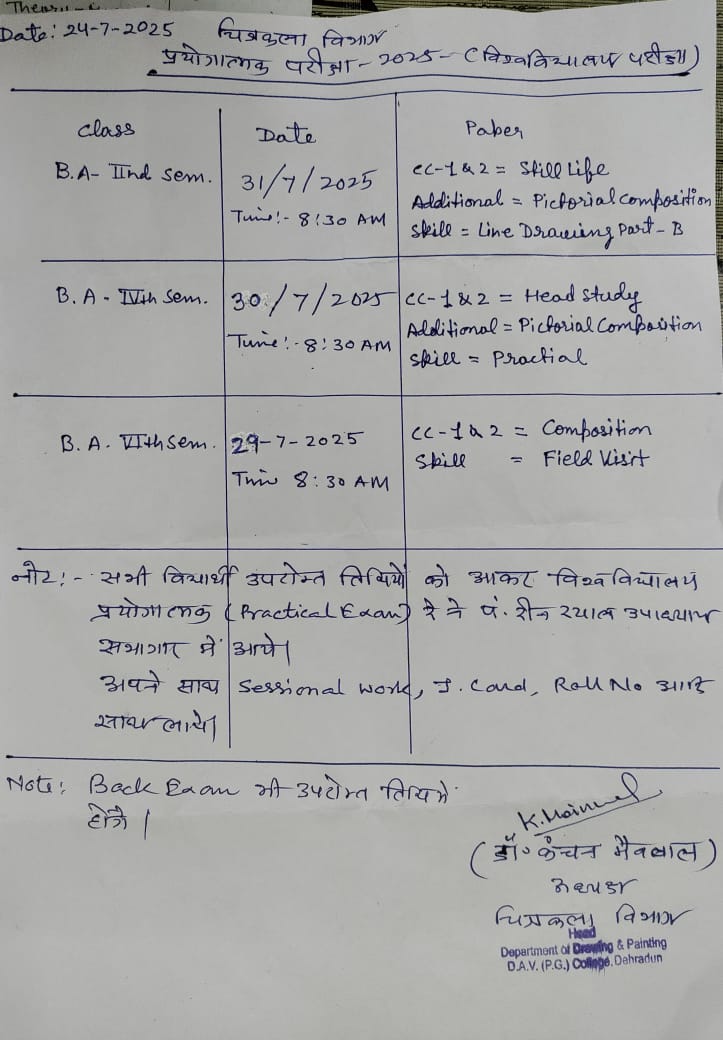 Theory
Date: 24-7-2025 चित्रकला विभाग
प्रयोगात्मक परीक्षा - 2025 - (विश्वविद्यालय परीक्षा)
Class Date Paper
B.A- IInd Sem. 31/7/2025 CC-1 & 2 = Still Life
Time:- 8:30 AM Additional = Pictorial Composition
Skill = Line Drawing Part - B
B.A - IVth Sem. 30/7/2025 CC-1 & 2 = Head Study
Time:- 8:30 AM Additional = Pictorial Composition
Skill = Practial
B.A. VIth Sem. 29-7-2025 CC-1 & 2 = Composition
Time 8:30 AM Skill = Field Visit
नोट:- सभी विद्यार्थी उपरोक्त तिथियों को आकर विश्वविद्यालय
प्रयोगात्मक (Practical Exam) देने पं. दीन दयाल उपाध्याय
सभागार में आये।
अपने साथ Sessional work, I. Card, Roll No आदि
साथ लाये।
Note: Back Exam भी उपरोक्त तिथि में
होंगे।
K. Mainwal
(डॉ० कंचन मैनवाल)
अध्यक्ष
चित्रकला विभाग
Head
Department of Drawing & Painting
D.A.V. (P.G.) College, Dehradun